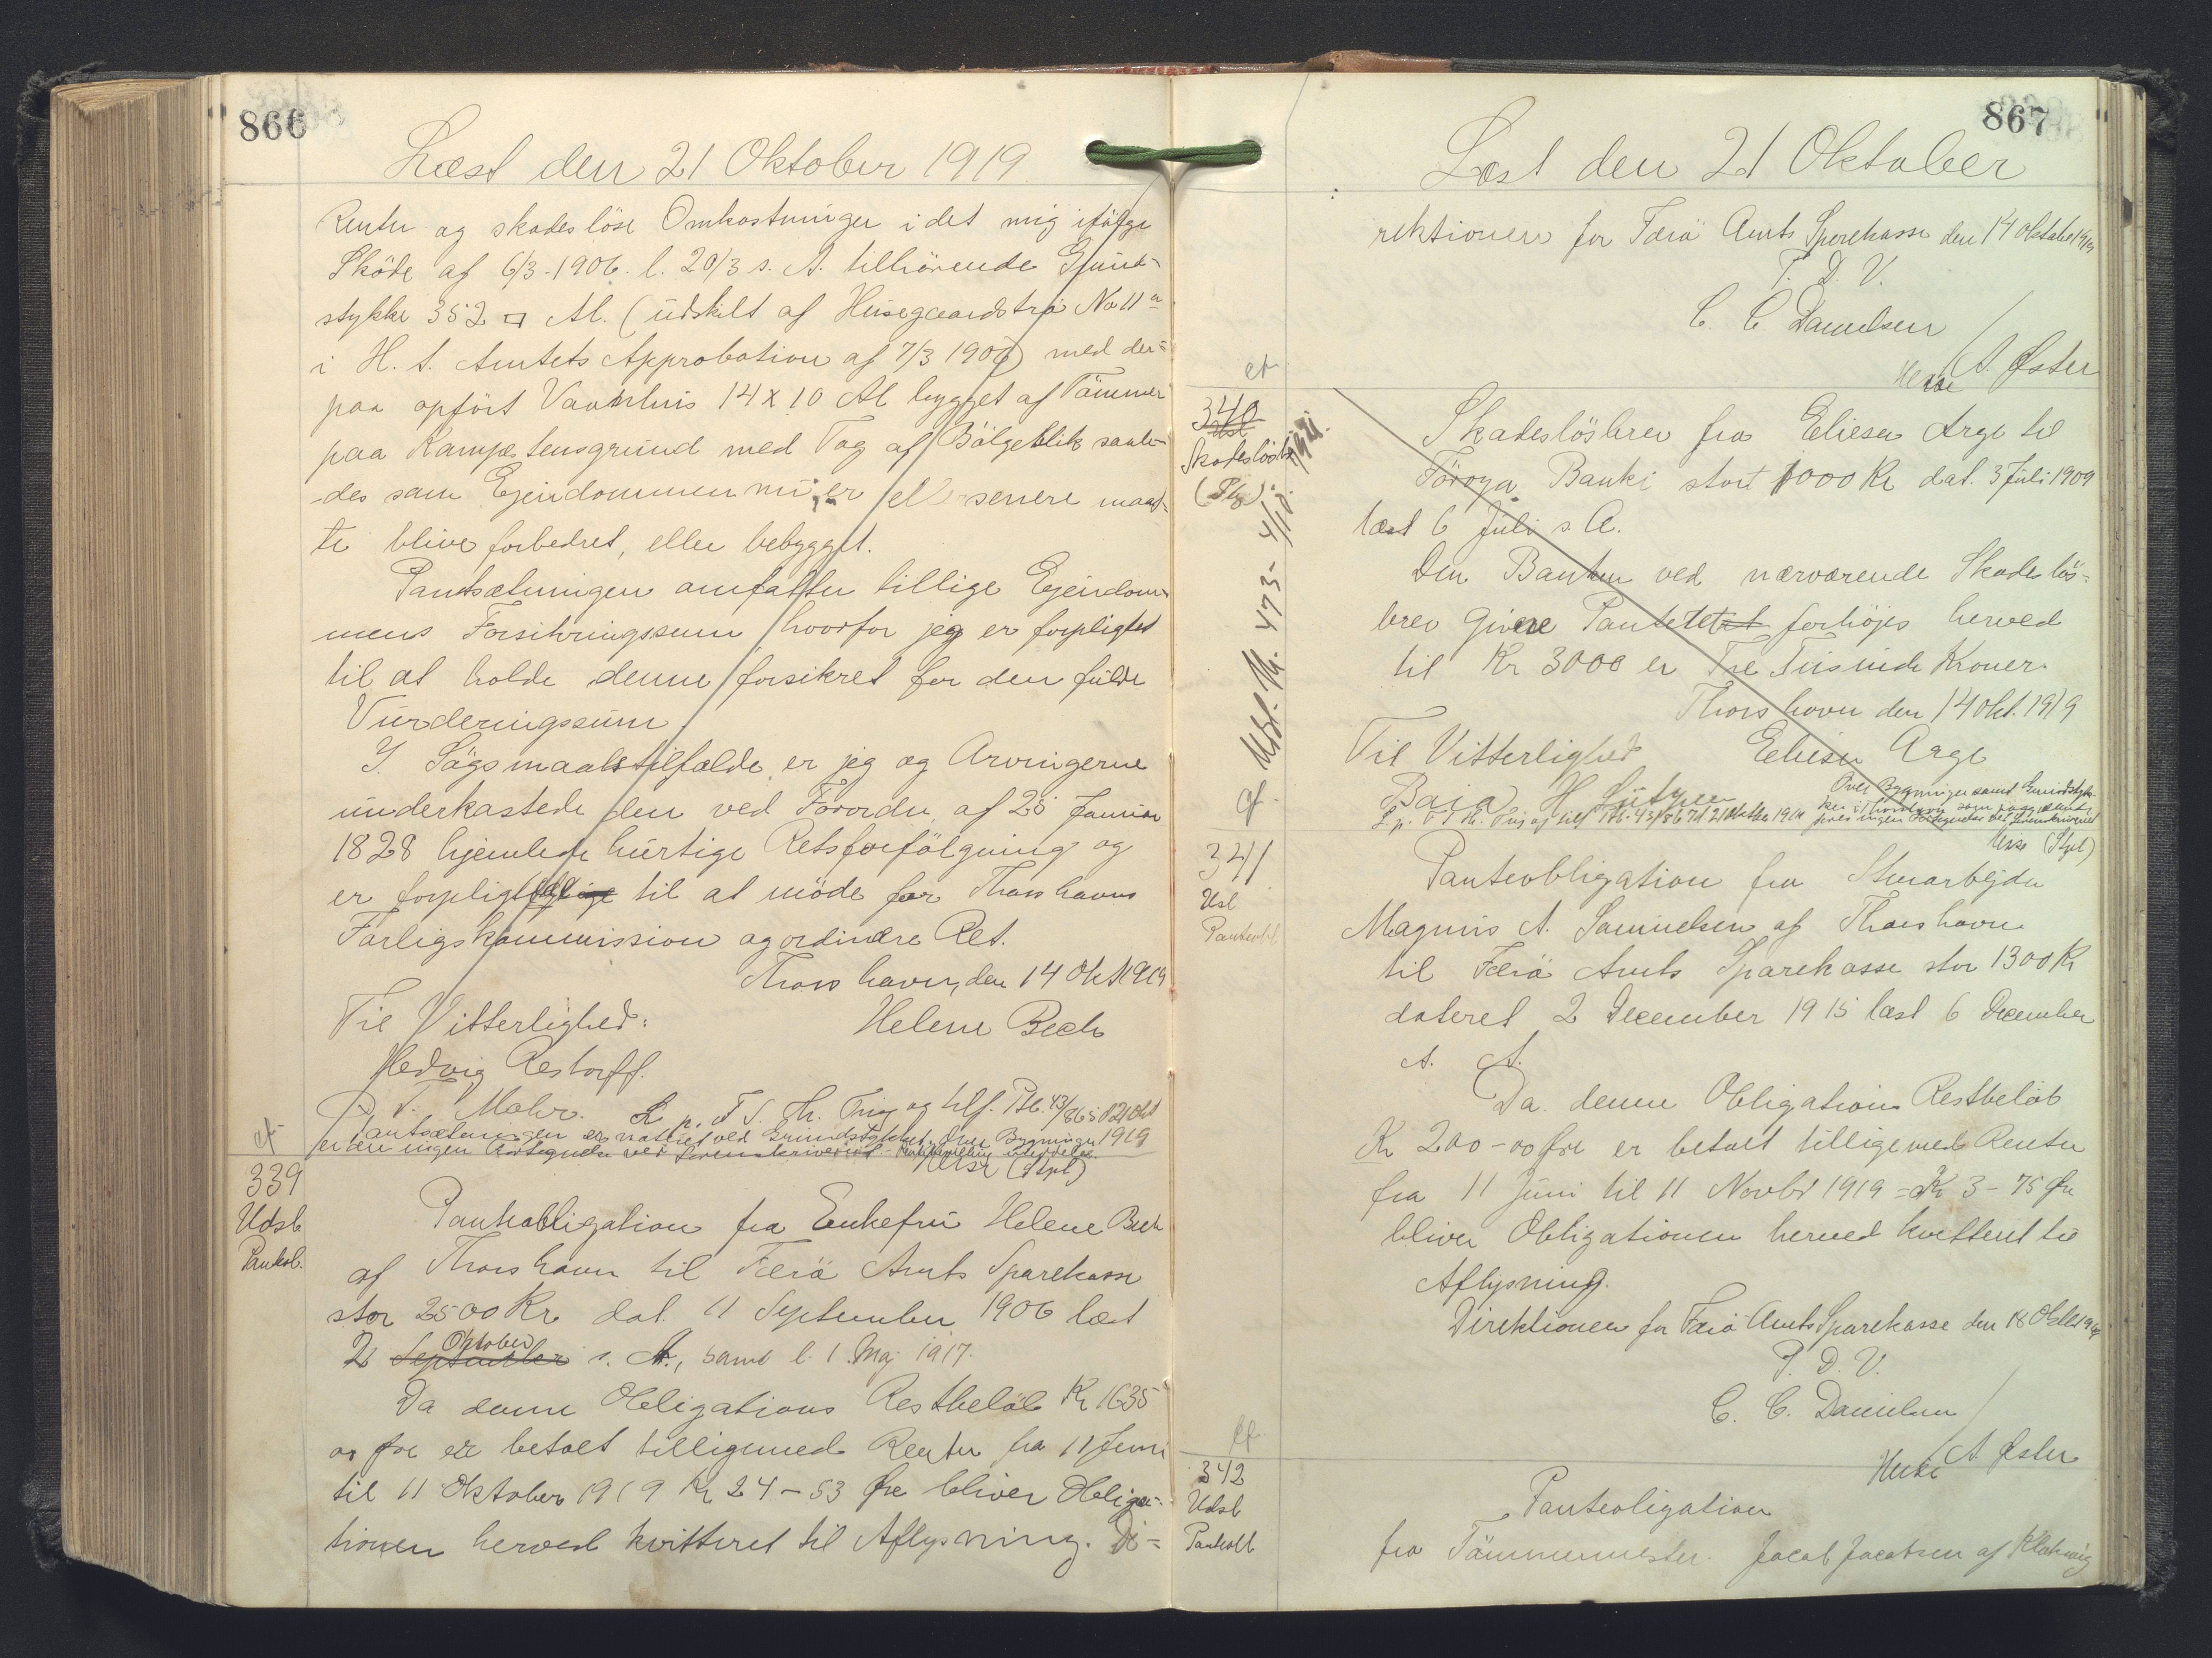 866
Læst den 21 Oktober 1919
Renter og skadesløse Omkostninger i det mig ifölge
Sköde af 6/3-1906. l. 20/3 s. A. tilhörende Grund-
stykke 352 □ Al. (udskilt af Husegaardströ No 11a
i H. t. Amtets Approbation af 7/3 1906) med der=
paa opfört Vaanhus 14 x 10 Al bygget af Tömmer
paa Kampestensgrund med Tag af Bölgeblik saale-
des som Ejendommen nu er ell senere maat-
te blive forbedret, eller bebygget.
Pantsætningen omfatter tillige Ejendom-
mens Forsikringssum hvorfor jeg er forpligtet
til at holde denne forsikret for den fulde
Vurderingssum
I. Sögsmaalstilfælde er jeg og Arvingerne
underkastede den ved Forordn. af 25 Januar
1828 hjemlede hurtige Retsforfölgning og
er forpligtede til at möde for Thorshavns
Forligskommission og ordinære Ret.
Thorshavn, den 14 Okt 1919
Til Vitterlighed: Helene Bech
Hedvig Restorff.
P. V. Mohr. L. p. F S. Th. Ting og tilf. Ptb. 43/865 d 21 Okt
1919
Pantsætningen er noteret ved Grundstykket. Over Bygningen
er der ingen Fortegnelse ved Sorenskriveriet
Heise (Stpl)
cf
339
Udsl
Pantob.
Panteobligation fra Enkefru Helene Bech
af Thorshavn til Færö Amts Sparekasse
stor 2500 Kr dat 11 September 1906 læst
Oktober
2 September s. A., samt l. 1. Maj 1917.
Da denne Obligations Restbelöb Kr 1635
00 Øre er betalt tilligemed Renter fra 11 Juni
til 11 Oktober 1919 Kr 24-53 Øre bliver Obliga-
tionen herved kvitteret til Aflysning. Di=
867
Læst den 21 Oktober
rektionen for Færö Amts Sparekasse den 14 Oktober 1919
P. D. V.
C. C. Danielsen
/ A. Øster
Heise
cf
340
Udsl
Skadeslösbr
(Stp)
cf. Udsl. Pr. 473-
Skadeslösbrev fra Elieser Arge til
Föroya Banki stort 1000 Kr dat. 3 Juli 1909
læst 6 Juli s. A.
Den Banken ved nærværende Skadeslös-
brev givne Panteret forhöjes herved
til Kr 3000 er Tre Tusinde Kroner.
Thorshavn den 14 Okt. 1919
Til Vitterlighed Elieser Arge
Baia H Lützen
Over Bygningen samt Grundstyk-
L. p. F S Th. Ting og tilf Ptb. 43/867 d 21 Oktober 1919
Heise (Stpl)
341
Usl
Panteobl.
Panteobligation fra Stenarbejder
Magnus A. Samuelsen af Thorshavn
til Færö Amts Sparekasse stor 1300 Kr
dateret 2 December 1915 læst 6 December
s. A.
Da denne Obligations Restbelöb
Kr 200-00 Øre er betalt tilligemed Renter
fra 11 Juni til 11 Novbr 1919 = Kr 3-75 Øre
bliver Obligationen herved kvitteret til
Aflysning.
Direktionen for Færö Amts Sparekasse den 18 Oktbr 1919
P. D. V.
C. C. Danielsen
/ A Øster
Heise
cf
342
Udsl
Panteobl
Panteoligation
fra Tömmermester. Jacob Jacobsen af Klaksvig